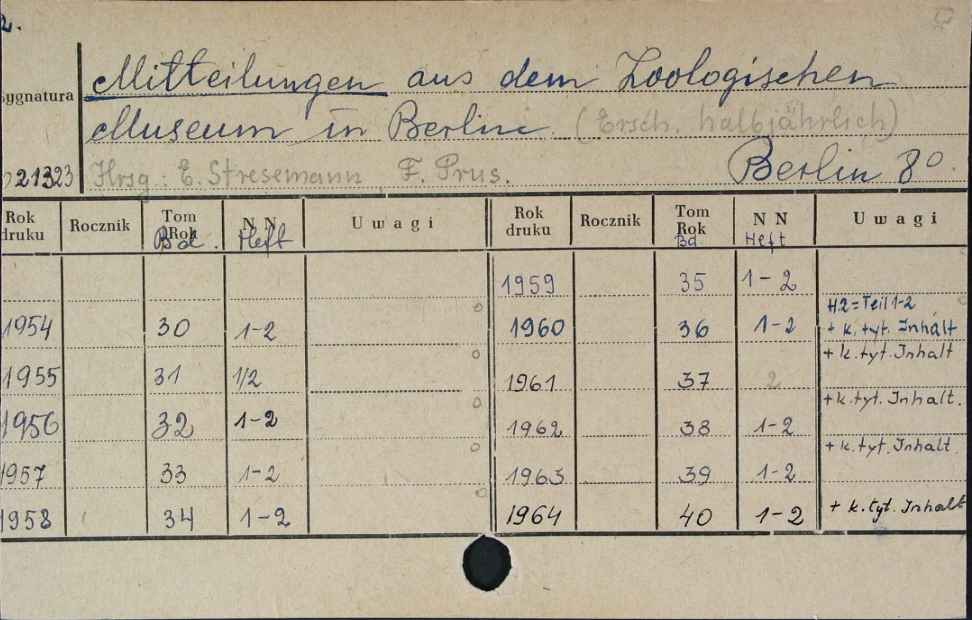 2.
Mitteilungen aus dem Zoologischen
Sygnatura
Museum in Berlin (Ersch. halbjährlich)
21323 Hrsg: E. Stresemann F. Prus. Berlin 8°
Rok druku Rocznik Tom Rok Bd. N N Heft Uwagi Rok druku Rocznik Tom Rok Bd N N Heft Uwagi
1959 35 1-2
H.2=Teil 1-2
1954 30 1-2 1960 36 1-2 + k. tyt. Inhalt
+ k. tyt. Inhalt
1955 31 1/2 1961 37 2
+ k. tyt. Inhalt.
1956 32 1-2 1962 38 1-2
+ k. tyt. Inhalt
1957 33 1-2 1963 39 1-2
1958 34 1-2 1964 40 1-2 + k. tyt. Inhalt